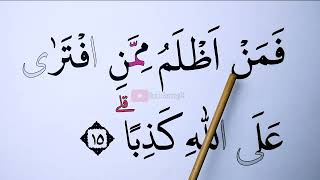 فَمَنْ اَظْلَمُ مِمَّنِ افْتَرٰى
عَلَى اللّٰهِ كَذِبًا ۗ ﴿١٥﴾